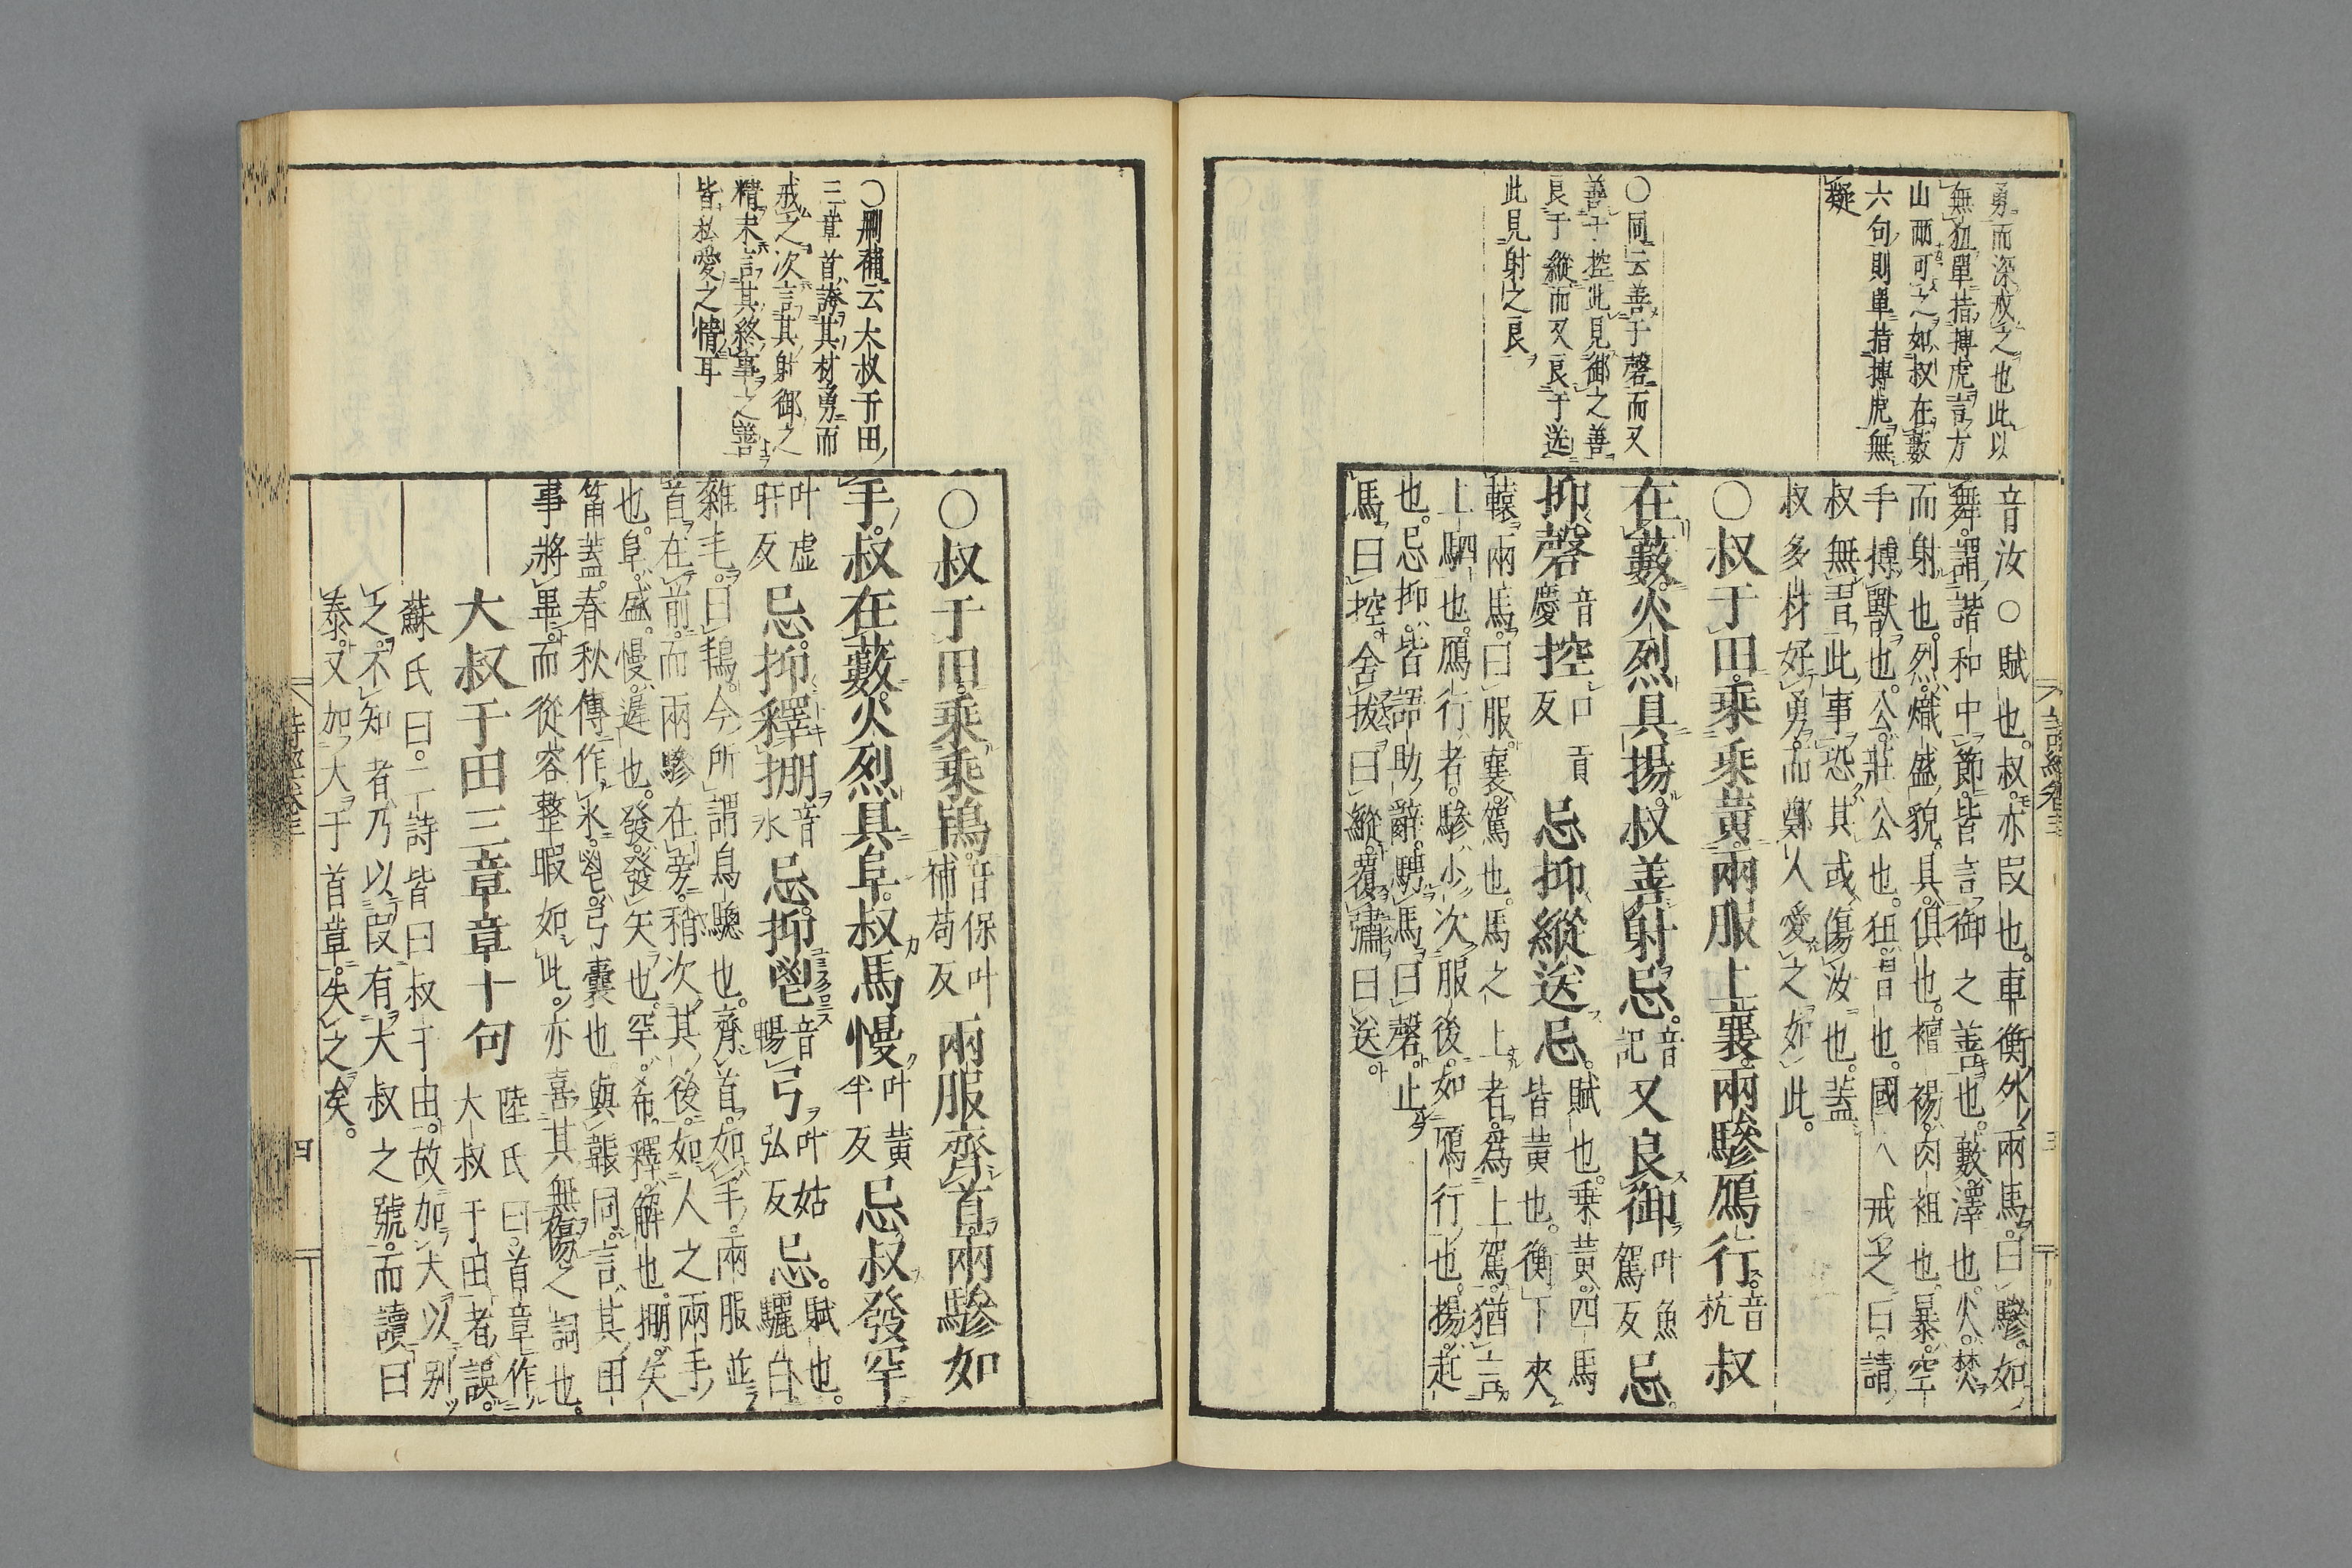 勇而深戒之也此以
無狃單指搏虎言方
山兩可之如叔在藪
六句則單指搏虎無
礙
○同云善于磬而又
善于控此見御之善
良于縱而又良于送
此見射之良
音汝○賦也叔亦叚也車衡外兩馬曰驂如
舞謂諧和中節皆言御之善也藪澤也火焚
而射也烈熾盛貌具俱也襢裼肉袒也暴空
手搏獸也公莊公也狃習也國人戒之曰請
叔無習此事恐其或傷汝也蓋
叔多材好勇而鄭人愛之如此
○叔于田乗乗黄兩服上襄兩驂鴈行音杭叔
在藪火烈具揚叔善射忌音記又良御叶魚駕反忌
抑磬音慶控口貢反忌抑縱送忌賦也乗黄四馬
皆黄也衡下夾
轅兩馬曰服襄駕也馬之上者爲上駕猶言
上駟也鴈行者驂少次服後如鴈行也揚起
也忌抑皆語助辭騁馬曰磬止
馬曰控舍拔曰縱覆彇曰送
詩經卷三
三
○刪補云大叔于田
三章首誇其材勇而
戒之次言其射御之
精末言其終事之善
皆私愛之情耳
○叔于田乗乗鴇音保叶補苟反兩服齊首兩驂如
手叔在藪火烈具阜叔馬慢叶黄半反忌叔發罕
叶虛旰反忌抑釋掤音氷忌抑鬯音暢弓叶姑弘反忌賦也驪白
雜毛曰鴇今所謂烏驄也齊首如手兩服並
首在前而兩驂在旁稍次其後如人之兩手
也阜盛慢遲也發發矢也罕希釋解也掤矢
筩蓋春秋傳作氷鬯弓囊也與韔同言其田
事將畢而從容整暇如此亦喜其無傷之詞也
大叔于田三章章十句陸氏曰首章作
大叔于田者誤
蘇氏曰二詩皆曰叔于田故加大以别
之不知者乃以叚有大叔之號而讀曰
泰又加大于首章失之矣
詩經卷三
四